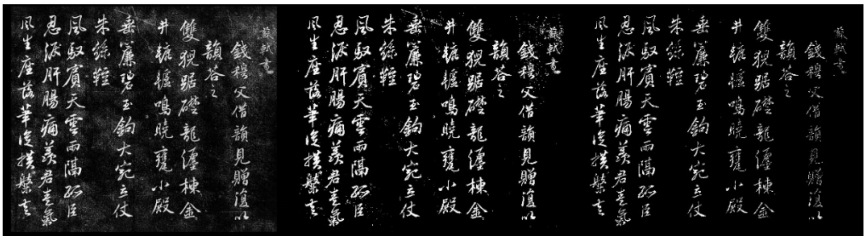 蘇軾書
錢穆父借韻見贈復以
韻答之
雙猊踞礎龍纏棟金
井轆轤鳴曉甕小殿
垂簾碧玉鉤大宛立仗
朱絲鞚
風馭賓天雲雨隔孤臣
忍淚肝腸痛羨君意氣
風生座落筆從橫槃走
蘇軾書
錢穆父借韻見贈復以
韻答之
雙猊踞礎龍纏棟金
井轆轤鳴曉甕小殿
垂簾碧玉鉤大宛立仗
朱絲鞚
風馭賓天雲雨隔孤臣
忍淚肝腸痛羨君意氣
風生座落筆從橫槃走
蘇軾書
錢穆父借韻見贈復以
韻答之
雙猊踞礎龍纏棟金
井轆轤鳴曉甕小殿
垂簾碧玉鉤大宛立仗
朱絲鞚
風馭賓天雲雨隔孤臣
忍淚肝腸痛羨君意氣
風生座落筆從橫槃走